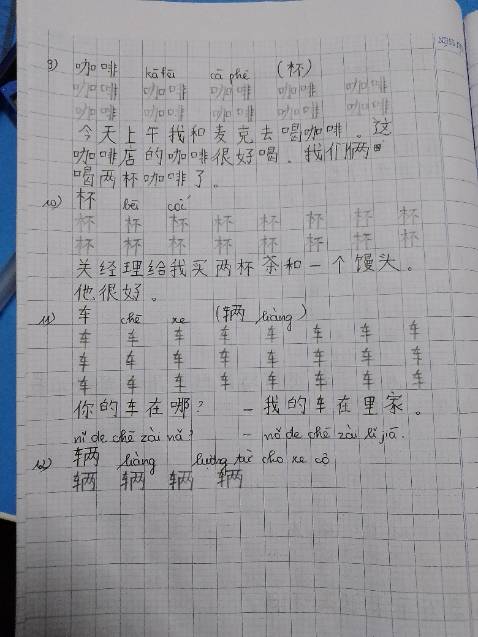 9) 咖啡 kāfēi cà phê (杯)
咖啡 咖啡 咖啡 咖啡 咖啡
咖啡 咖啡 咖啡 咖啡 咖啡
今天上午我和麦克去喝咖啡。这
咖啡店的咖啡很好喝。我们俩
喝两杯咖啡了。
10) 杯 bēi cái
杯 杯 杯 杯 杯 杯 杯 杯
杯 杯 杯 杯 杯 杯 杯 杯
关经理给我买两杯茶和一个馒头。
他很好。
11) 车 chē xe (辆 liàng)
车 车 车 车 车 车 车 车
车 车 车 车 车 车 车 车
车 车 车 车 车 车 车 车
你的车在哪? - 我的车在里家。
nǐ de chē zài nǎ? - nǒ de chē zài lǐ jiā.
12) 辆 liàng lượng từ cho xe cộ
辆 辆 辆 辆